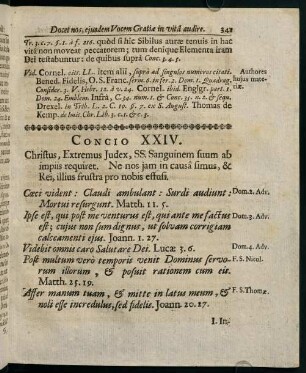 Docet nos, ejusdem Vocem Gratiæ in vitâ audire. 341
Tr. p. c. 7. s. 5. à f. 116. quòd si hîc Sibilus auræ tenuis in hac
visione moveat peccatorem; tum denique Elementa iram
Dei testabuntur: de quibus suprà Conc. 3. 4. 5.
Vid. Cornel. citt. LL. item alii, suprà ad singulos numeros citati.
Bened. Fidelis, O. S. Franc. Dom. 1. Quadrag.
Consider. 3. V. Hebr. 12. à v. 24. Cornel. ibid. Englgr. part. 1.
Dom. 24. Emblem. Infrà, C. 34. num. 1. & Conc. 35. n. 2. & 5.
Drexel. in Trib. L. 2. C. 10. §. 2. ex S. August. Thomas de
Kemp. de Imit. Chr. Lib. 3. c. 1. & 3.
Authores
hujus mate-
riæ.
CONCIO XXIV.
Christus, Extremus Judex, SS. Sanguinem suum ab
impiis requiret. Ne nos jam in causâ simus, &
Rei, illius frustra pro nobis effusi.
Cæci vident: Claudi ambulant: Surdi audiunt: Dom. 2. Adv.
Mortui resurgunt. Matth. 11. 5.
Ipse est, qui post me venturus est, qui ante me factus Dom. 3. Adv.
est; cujus non sum dignus, ut solvam corrigiam
calceamenti ejus. Joann. 1. 27.
Videbit omnis caro Salutare Dei. Lucæ 3. 6. Dom. 4. Adv.
Post multum verò temporis venit Dominus servo- F. S. Nicol.
rum illorum, & posuit rationem cum eis.
Matth. 25. 19.
Affer manum tuam, & mitte in latus meum, & F. S. Thomæ.
noli esse incredulus, sed fidelis. Joann. 20. 27.
I. In-